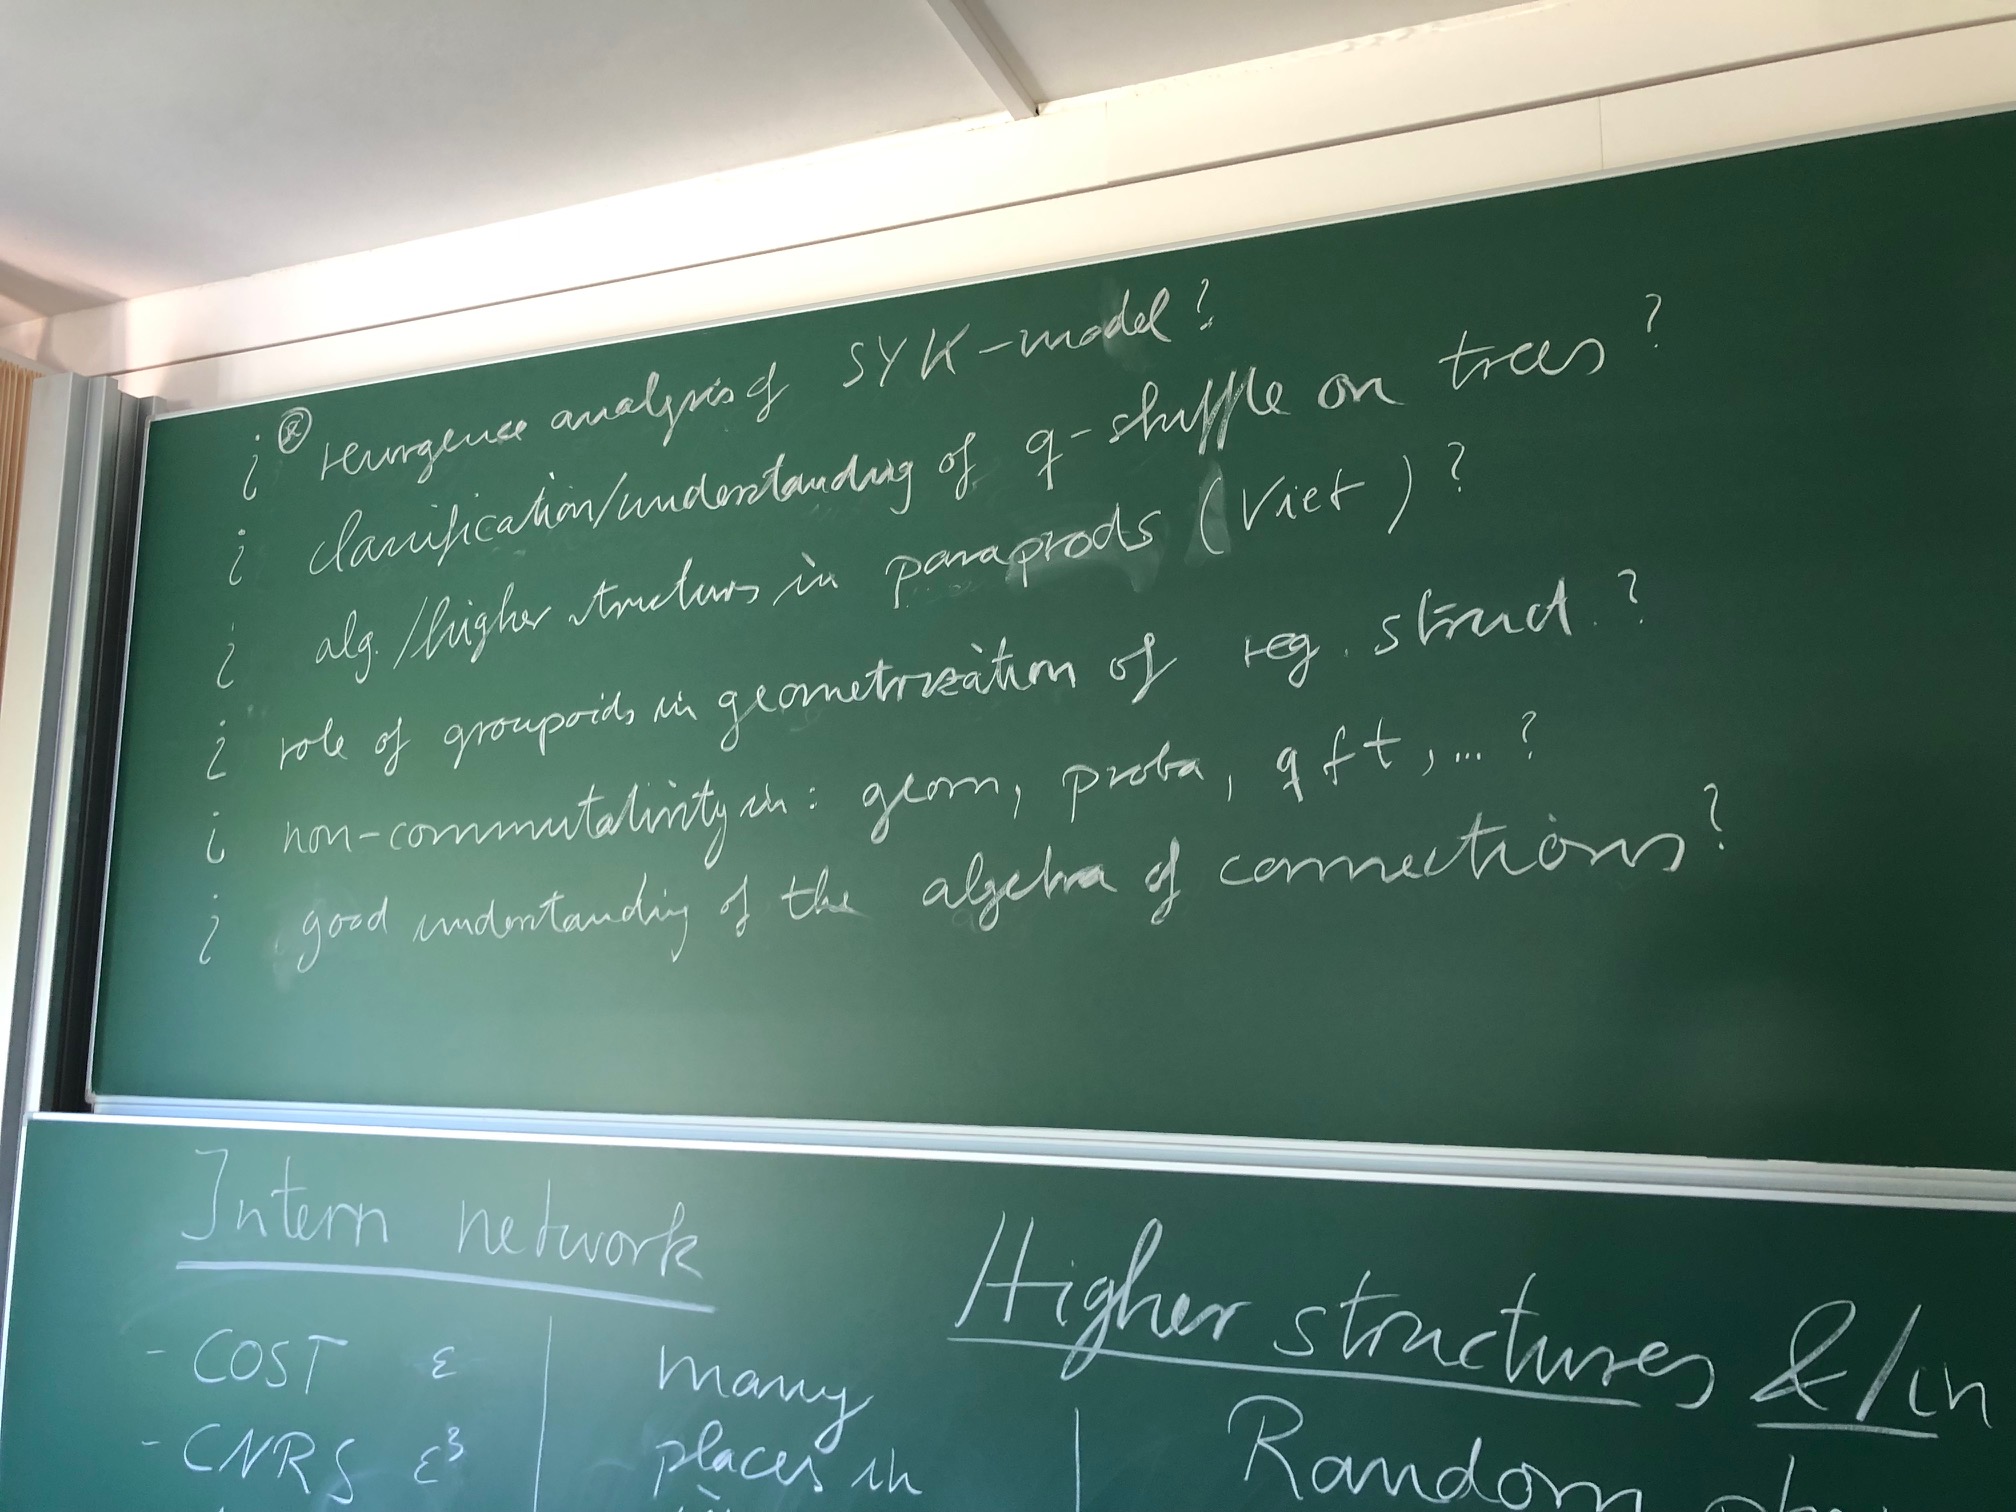 ¿ ⊛ resurgence analysis of SYK-model?
¿ classification/understanding of q-shuffle on trees?
¿ alg./higher structures in paraprods (Viet)?
¿ role of groupoids in geometrization of reg. struct.?
¿ non-commutativity in: geom, proba, qft,...?
¿ good understanding of the algebra of connections?
Intern network
- COST ε
- CNRS ε³
many
places in
Higher structures &/in
Random